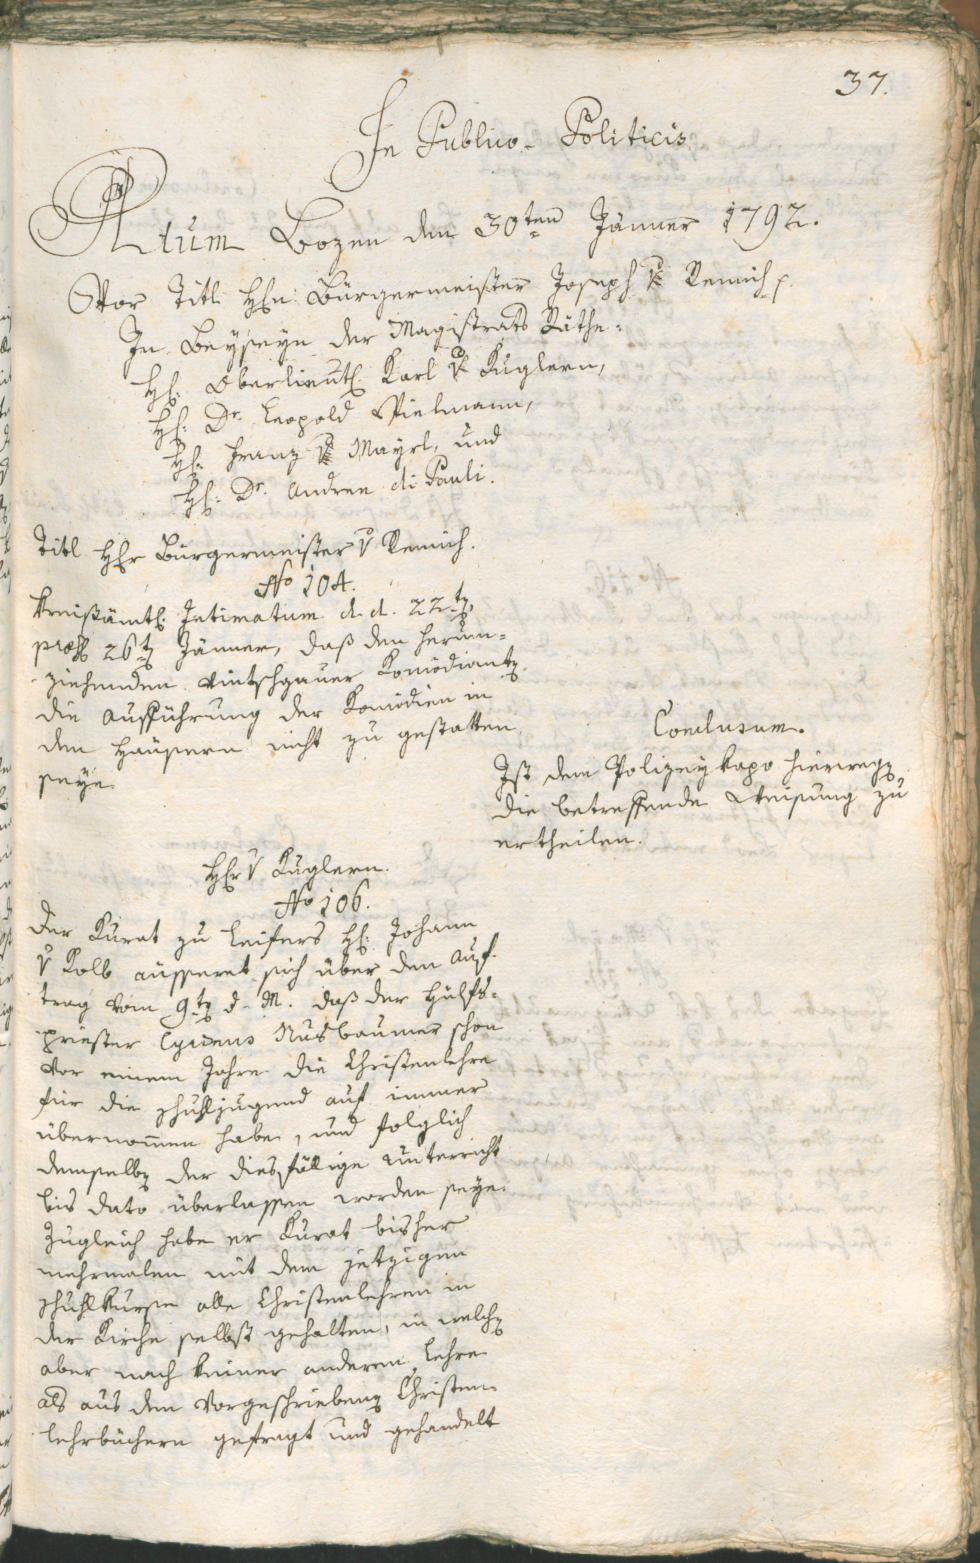 37.
In Publico-Politicis
Actum Bozen den 30ten Jänner 1792.
Vor Titl. Hln. Bürgermeister Joseph v Remich p.
In Beyseyn der Magistrats Räthe:
Hl: Oberlieut. Karl v Kuglern,
Hl: Dr. Leopold Vielmann,
Hl: Franz v Mayrl, und
Hl: Dr. Andree di Pauli.
Titl. Hhr Bürgermeister v Remich.
No 104.
Kreisämtl. Intimatum d. d. 22ten
præs. 26ten Jänner, daß den herum-
ziehenden vintschgauer Komödianten
die Aufführung der Komödien in
den Häusern nicht zu gestatten
seye.
Conclusum.
Ist dem Polizey kapo hierwegen
die betreffende Weisung zu
ertheilen.
Hhr v Kuglern.
No 106.
Der Kurat zu Leifers Hl: Johann
v Kolb äusseret sich über den Auf-
trag vom 9ten d. M. daß der Hülfs-
priester Nusbaumer schon
vor einem Jahre die Christenlehre
für die Schuhljugend auf immer
übernommen habe, und folglich
demselben der diesfällige Unterricht
bis dato überlassen worden seye.
Zugleich habe er Kurat bisher
mehrmalen mit dem jetzigen
Schuhlkurse alle Christenlehren in
der Kirche selbst gehalten, in welchen
aber nach keiner anderen Lehre
als aus den vorgeschriebenen Christen-
lehrbüchern gefragt und gehandelt